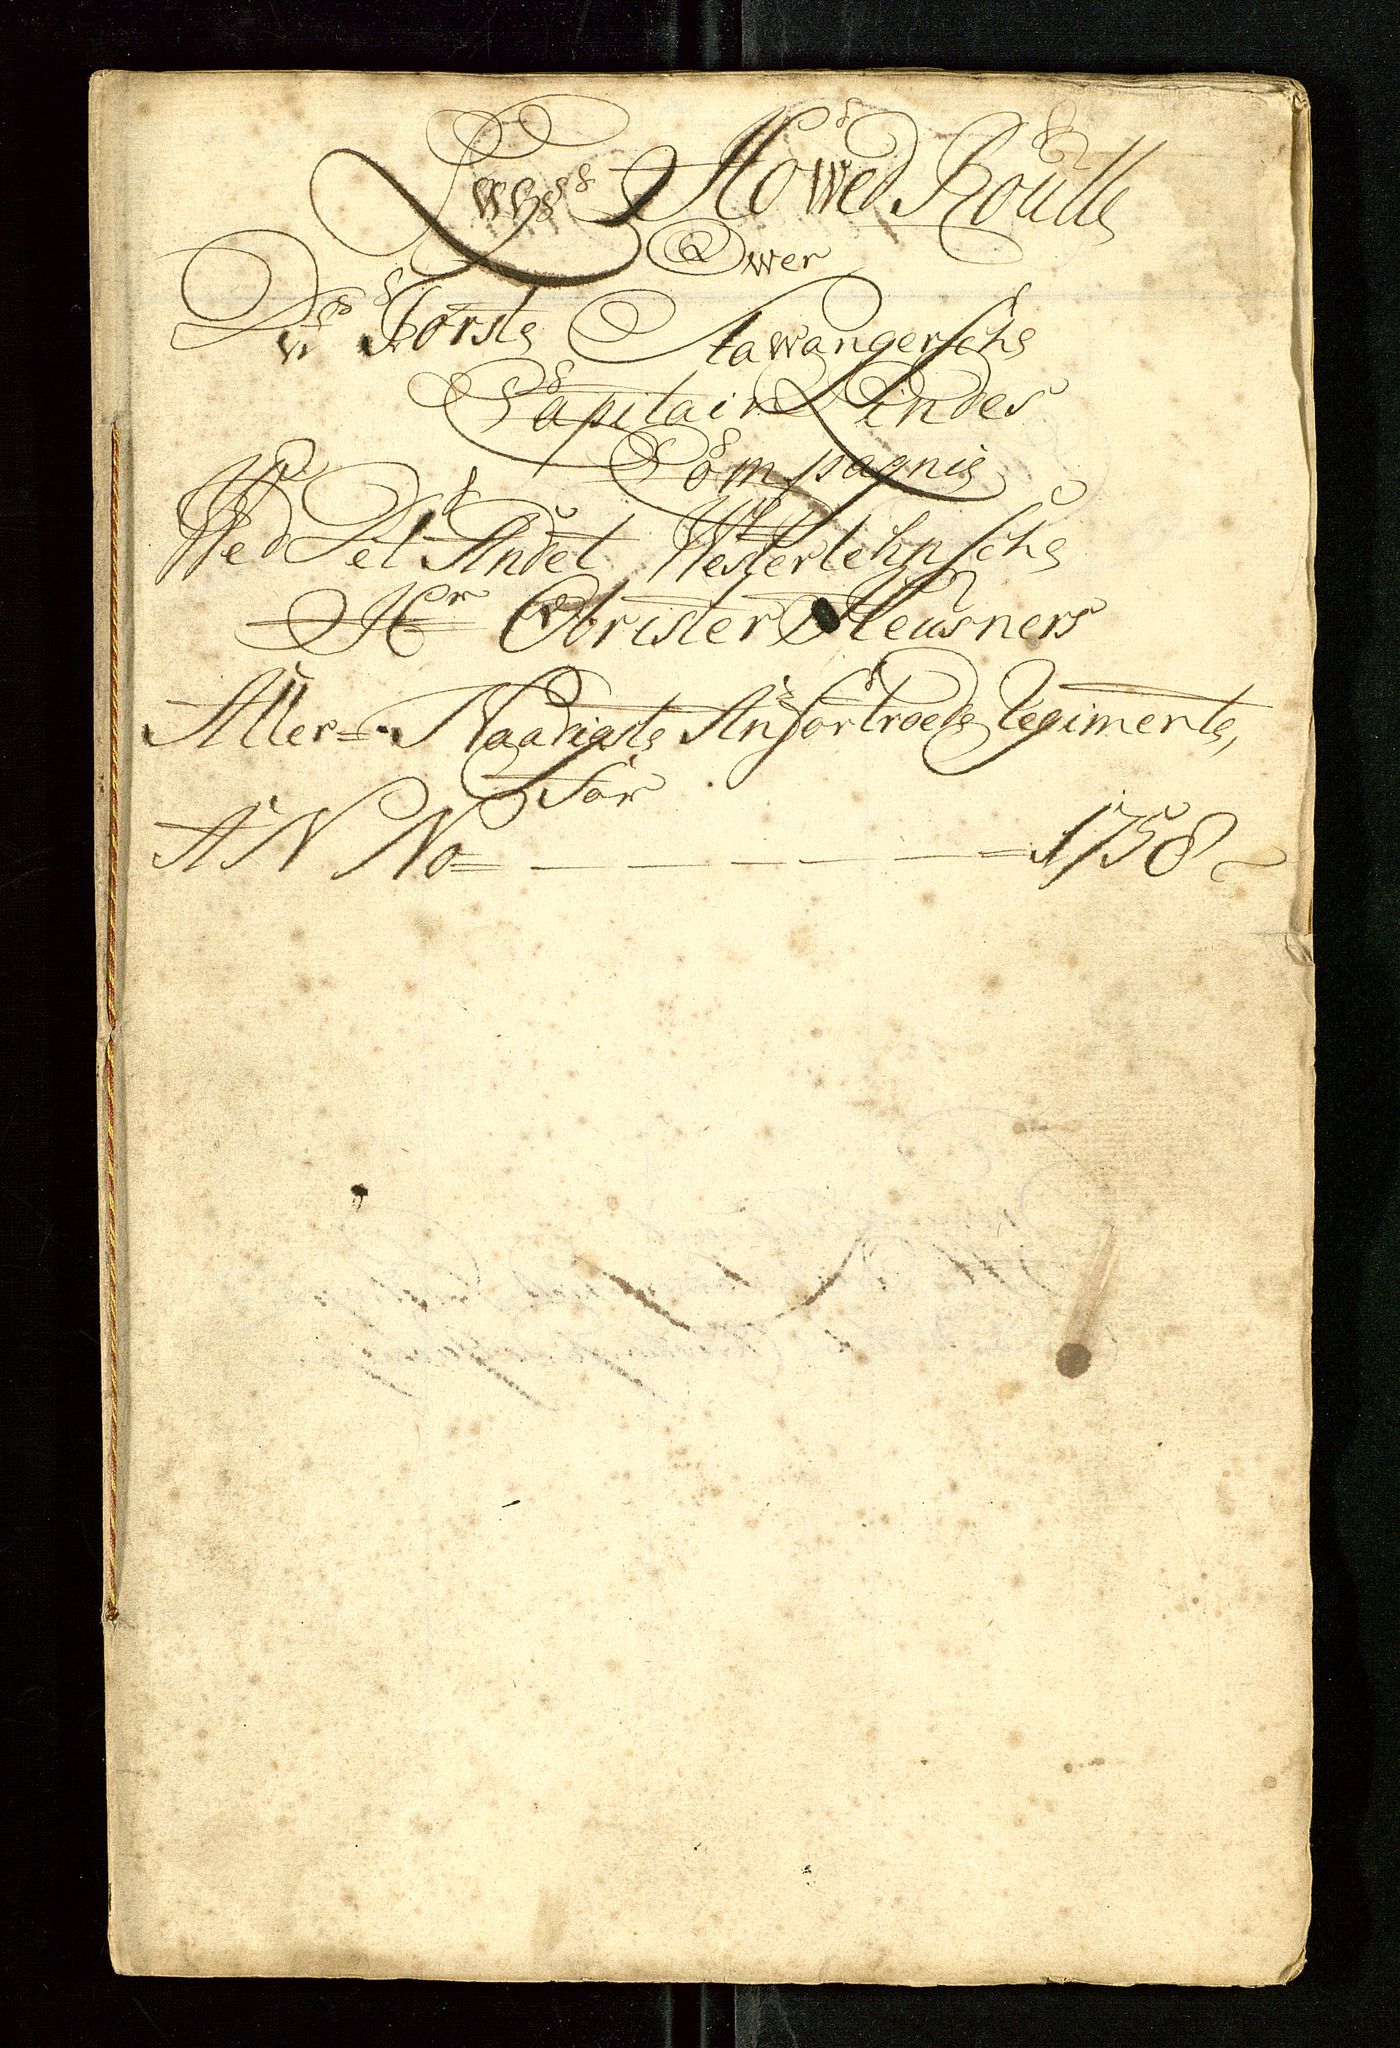 Howed Roulle
Ower
Förste Stawangersche
Capitain Lindes
Compagnie
Wed Det Andet Westerlehnsche
Hr Obrister Heusners
Aller- Naadigste Anfortroede Regimente,
For
ANNo 1758